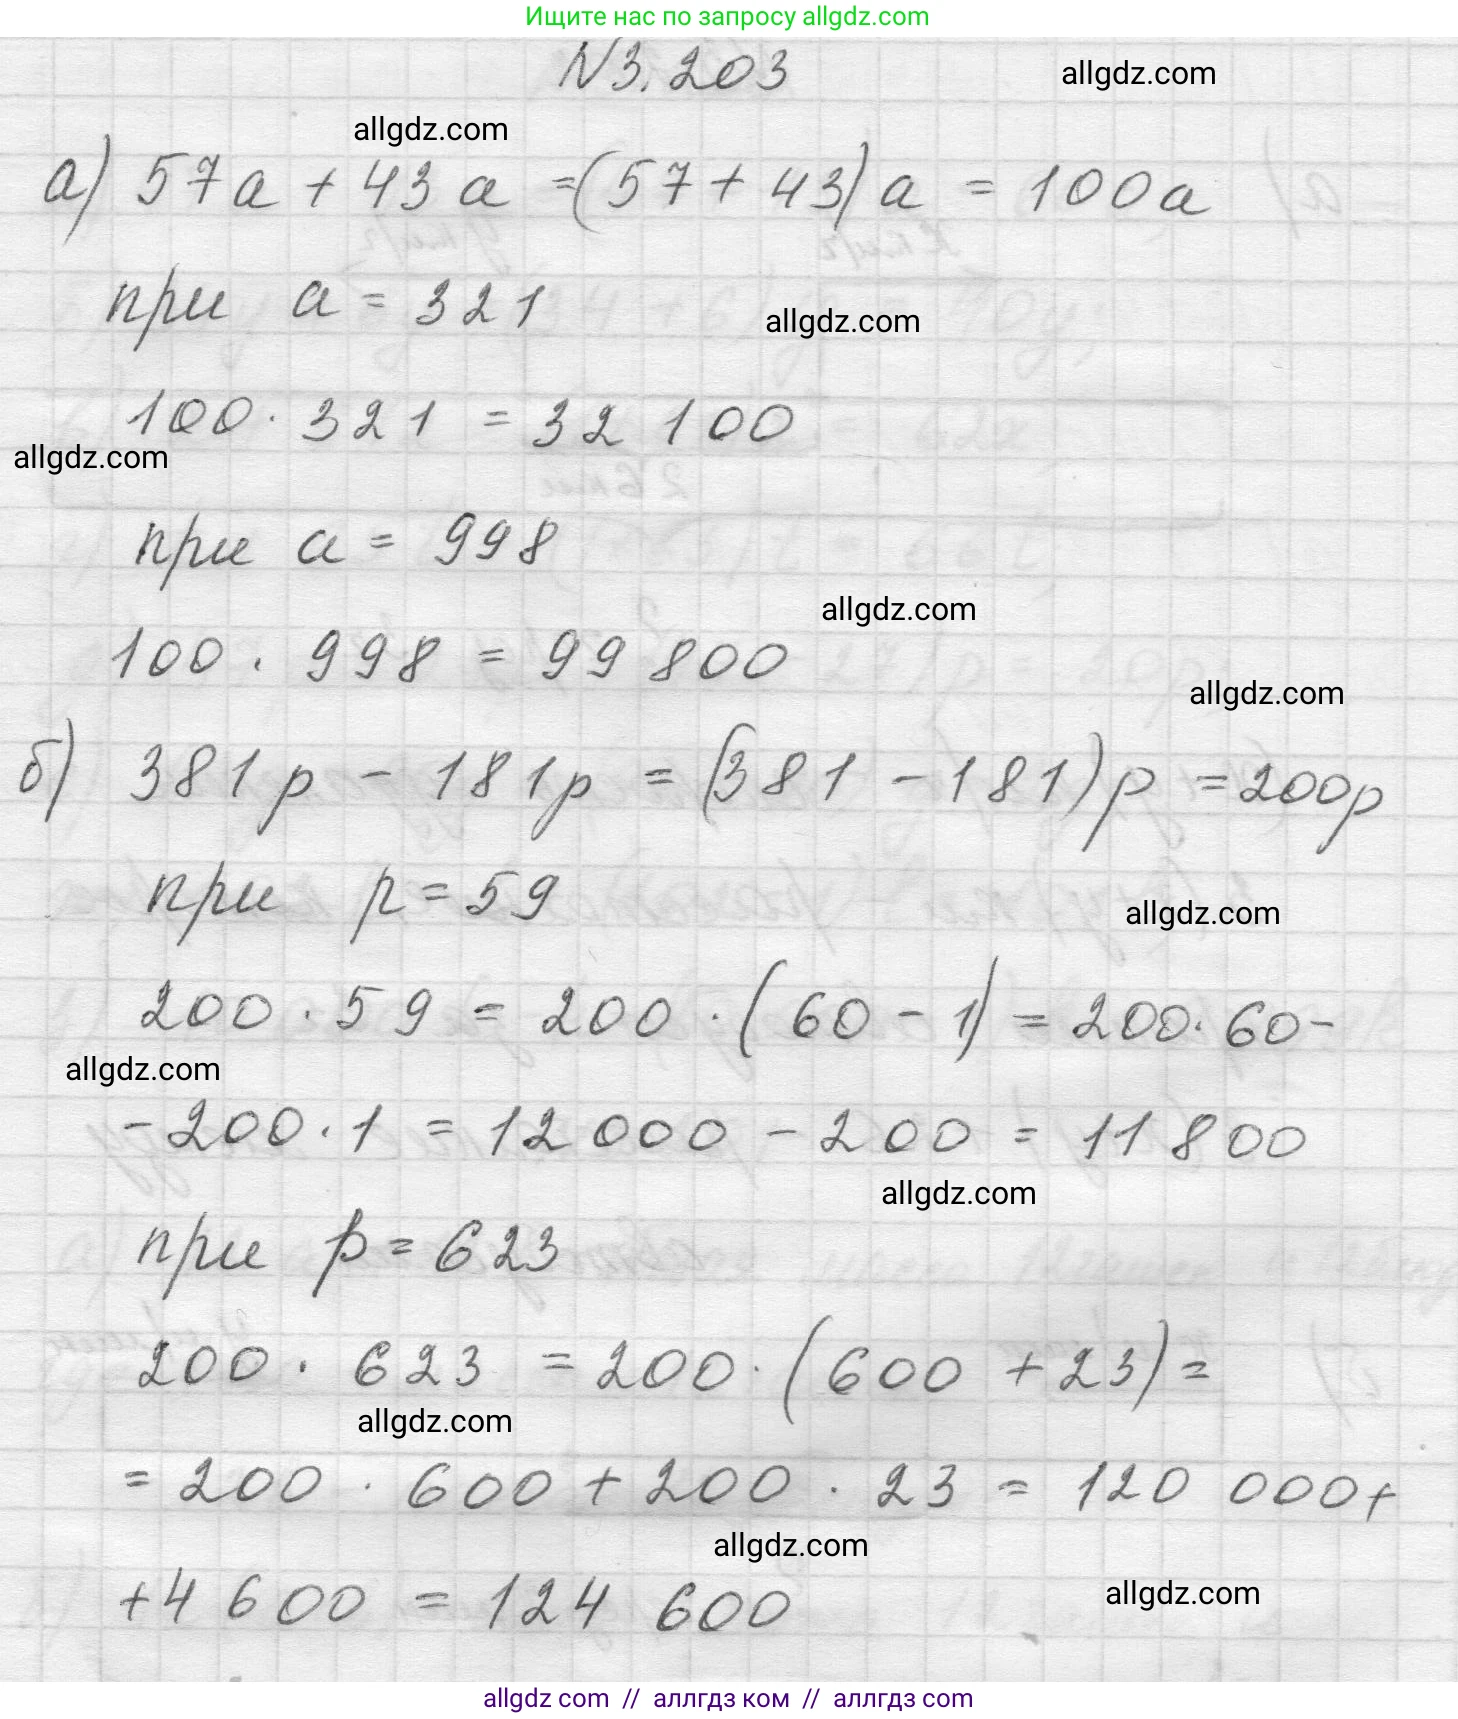 Ищите нас по запросу allgdz.com
N3.203
allgdz.com
allgdz.com
а) 57a + 43a =(57 + 43)a = 100a
при a = 321
allgdz.com
100 · 321 = 32 100
allgdz.com
при a = 998
allgdz.com
100 · 998 = 99 800
allgdz.com
б) 381p - 181p = (381 - 181)p = 200p
при p = 59
allgdz.com
200 · 59 = 200 · (60 - 1) = 200 · 60 -
allgdz.com
- 200 · 1 = 12 000 - 200 = 11 800
allgdz.com
при p = 623
200 · 623 = 200 · (600 + 23) =
allgdz.com
= 200 · 600 + 200 · 23 = 120 000 +
allgdz.com
allgdz.com
+ 4 600 = 124 600
allgdz com // аллгдз ком // аллгдз com